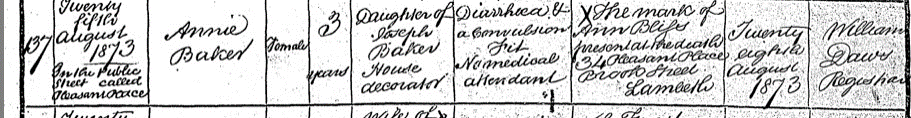 137
Twenty
fifth
August
1873
In the Public
Street called
Pleasant Place
Annie
Baker
Female
3
years
Daughter of
Joseph
Baker
House
decorator
Diarrhoea &
a Convulsion
Fit
No medical
attendant
X The mark of
Ann Bliss
present at the death
34 Pleasant Place
Brook Street
Lambeth
Twenty
eighth
August
1873
William
Daws
Registrar
Twenty
Wife of